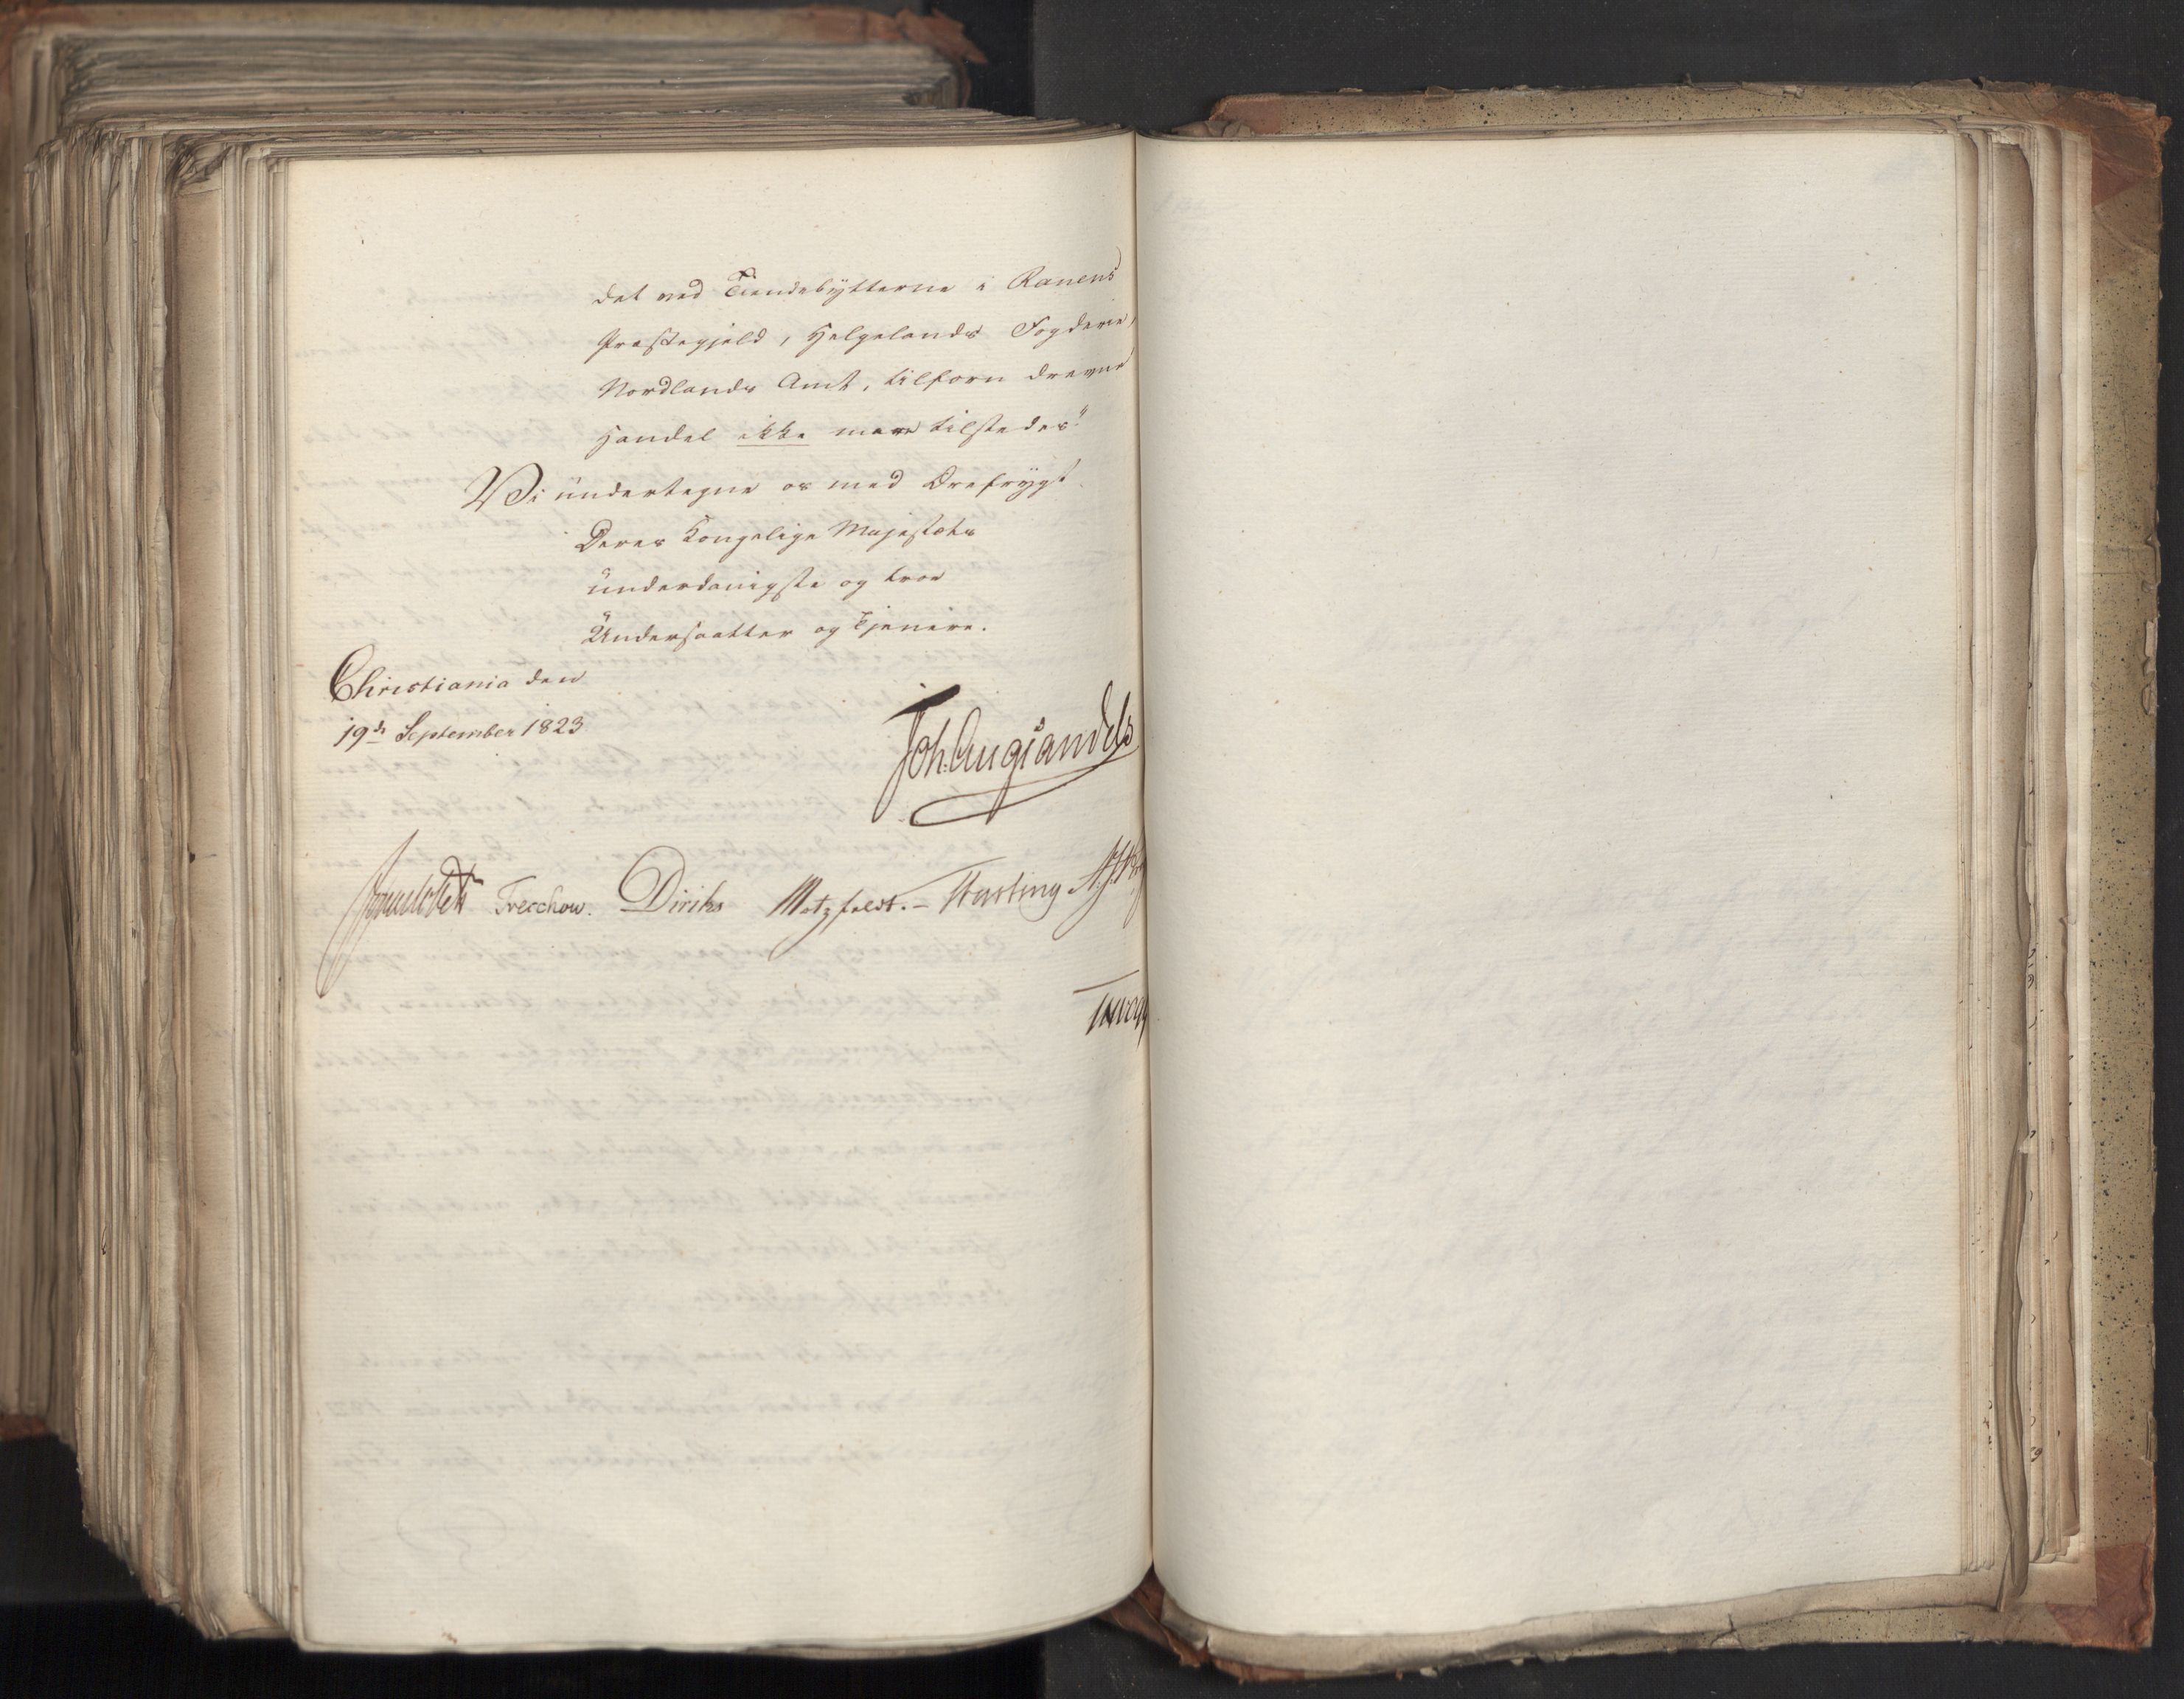 det ved Tiendebytterne i Ranens
Præstegjeld, Helgelands Fogderie,
Nordlands Amt, tilforn drevne
Handel ikke mere tilstedes"
Vi undertegne os med Ærefrygt
Deres Kongelige Majestæts
underdanigste og troe
Undersaatter og Tjenere.
Christiania den
19de September 1823
Joh. Aug. Sandels
Sommerfeldt Treschow. Diriks Motzfeldt. – Fasting